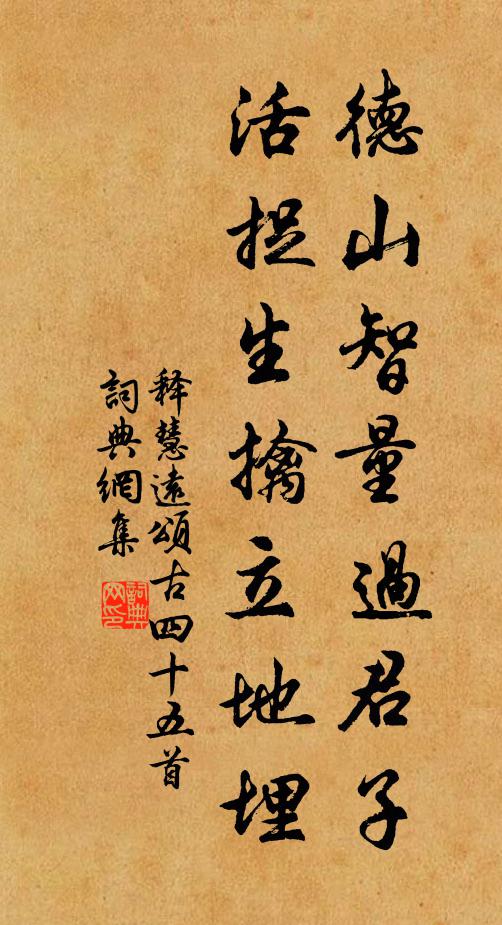 德山智量過君子
活捉生擒立地埋
釋慧遠頌古四十五首
詞典網集
詞典网印